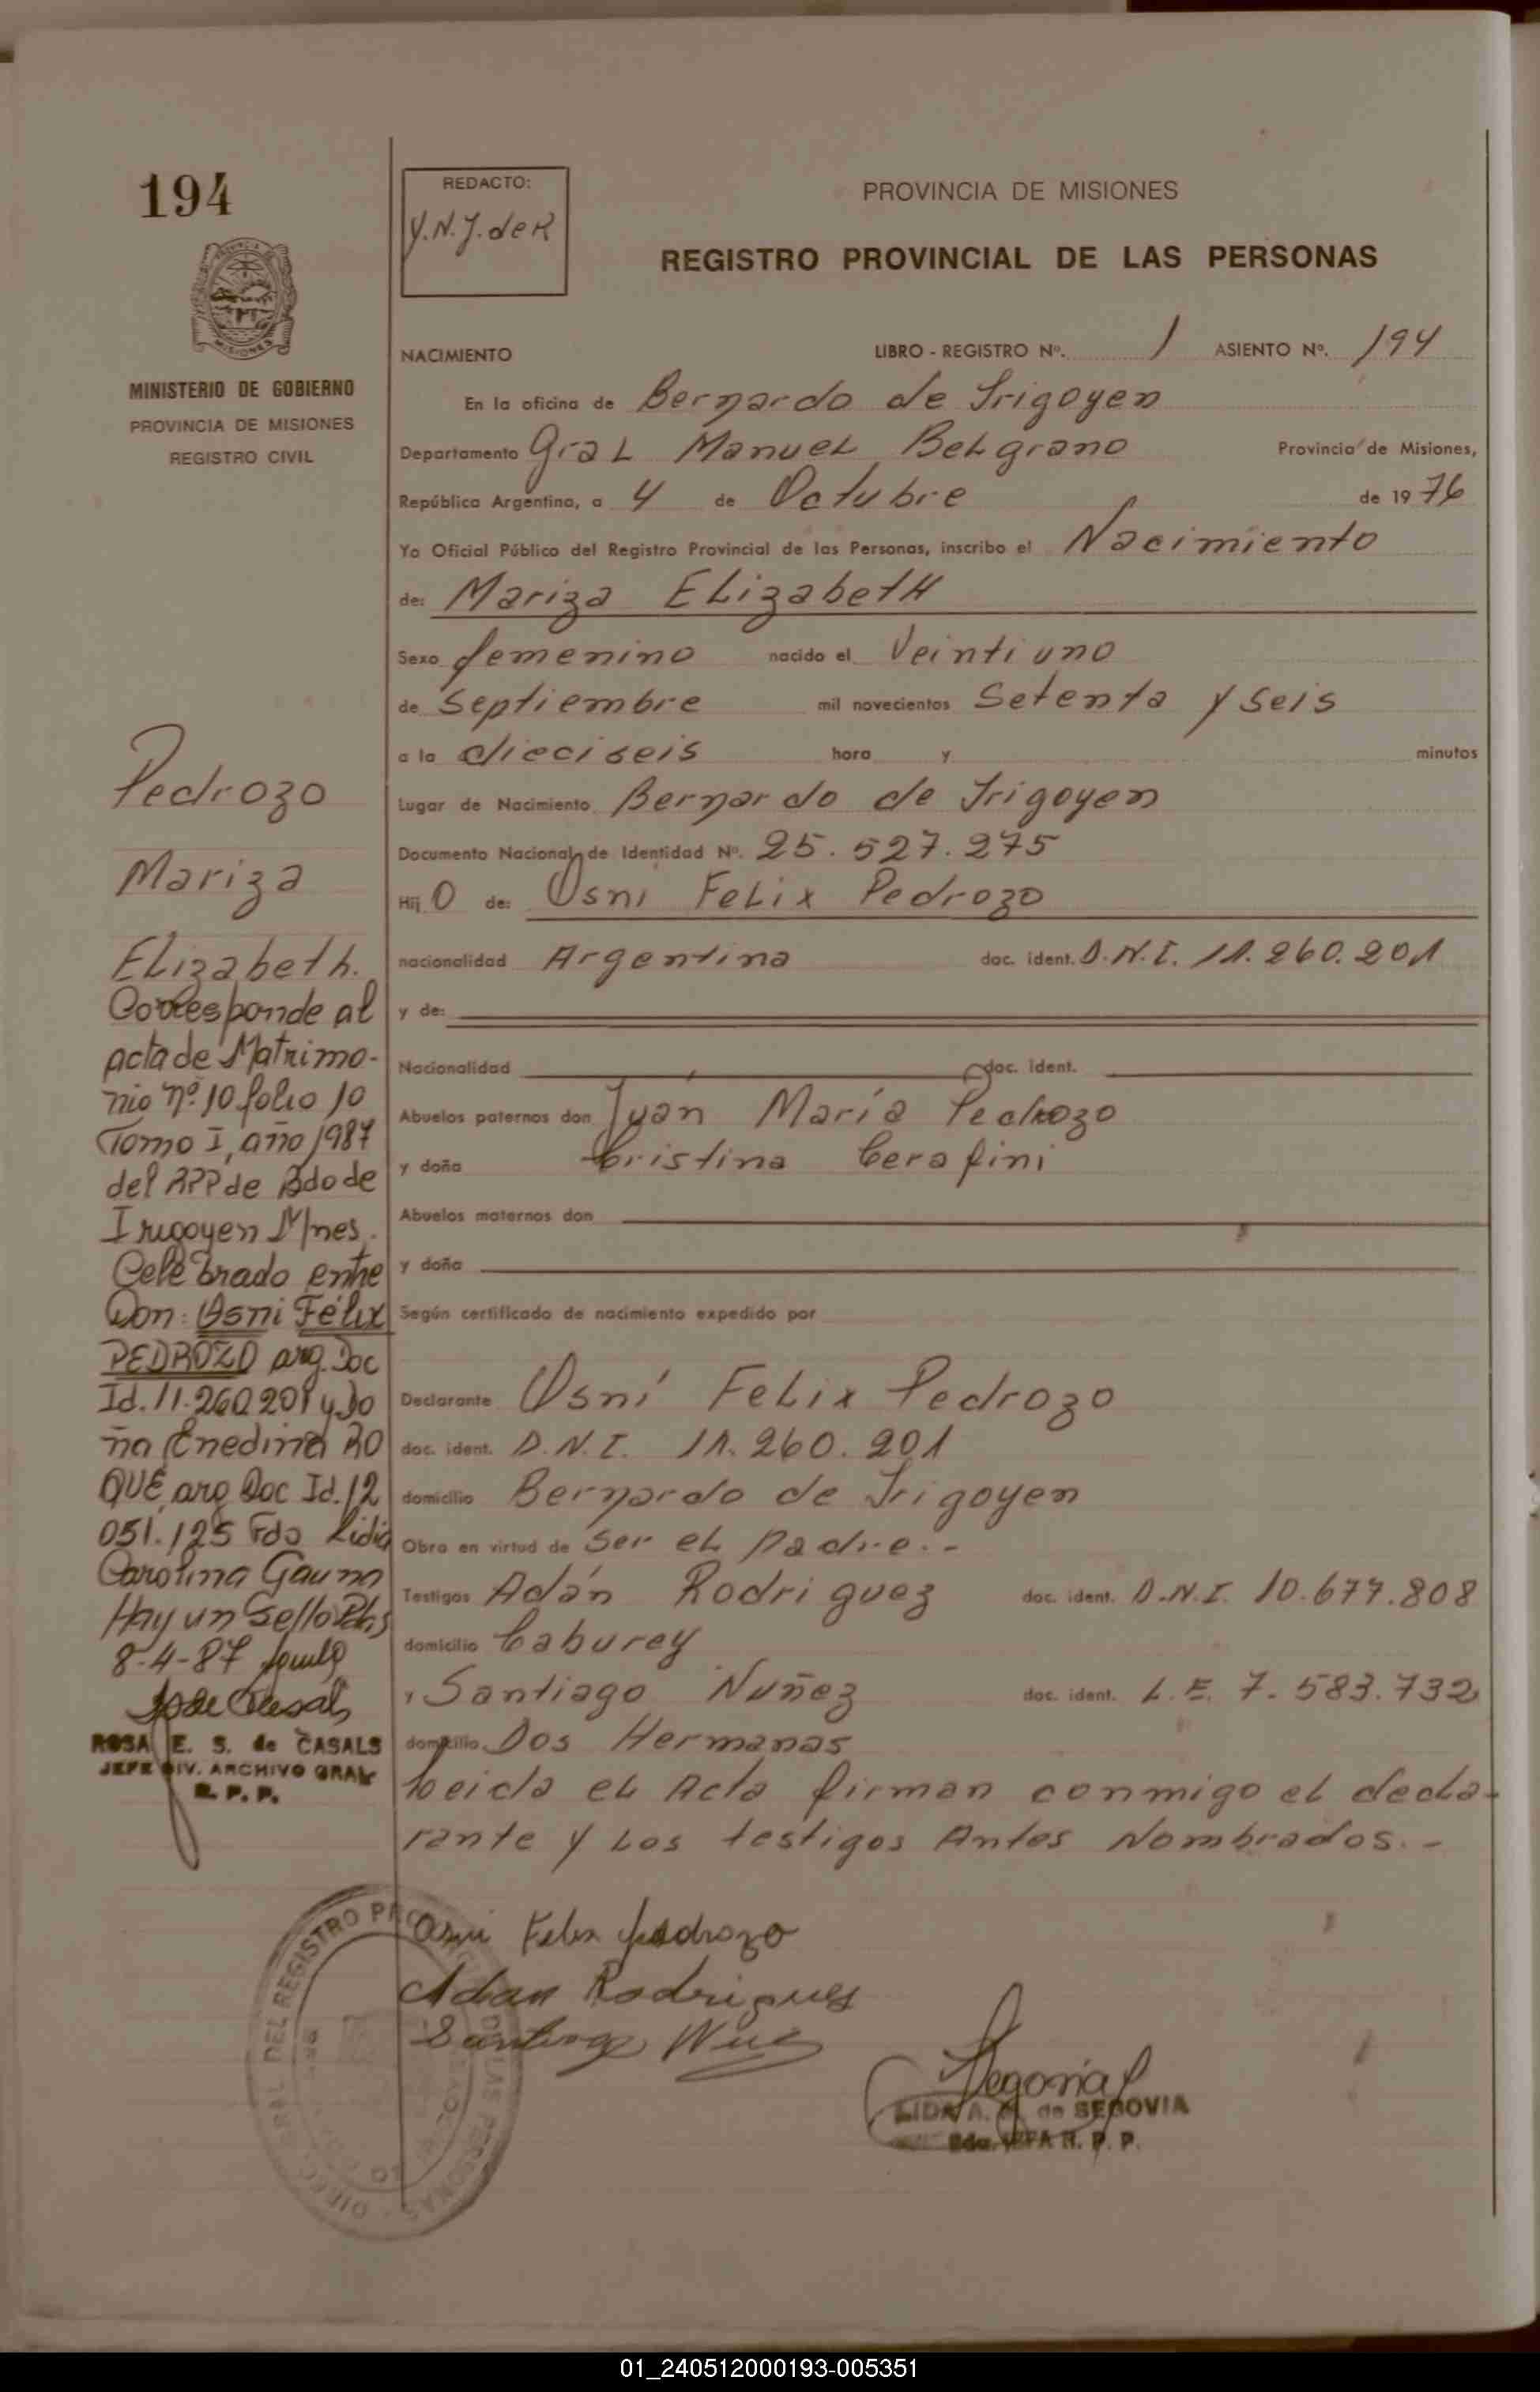 194
MINISTERIO DE GOBIERNO
PROVINCIA DE MISIONES
REGISTRO CIVIL
REDACTO:
Y.N.J. de R
PROVINCIA DE MISIONES
REGISTRO PROVINCIAL DE LAS PERSONAS
NACIMIENTO LIBRO - REGISTRO Nº. 1 ASIENTO Nº. 194
En la oficina de Bernardo de Irigoyen
Departamento Gral Manuel Belgrano Provincia de Misiones,
República Argentina, a 4 de Octubre de 1976
Yo Oficial Público del Registro Provincial de las Personas, inscribo el Nacimiento
de: Mariza Elizabeth
Sexo femenino nacido el Veintiuno
de Septiembre mil novecientos Setenta y Seis
a la dieciseis hora y minutos
Lugar de Nacimiento Bernardo de Irigoyen
Documento Nacional de Identidad Nº. 25.527.275
Hij O de: Osni Felix Pedrozo
nacionalidad Argentina doc. ident. D.N.I. 11.260.201
y de:
Nacionalidad doc. ident.
Abuelos paternos don Juán María Pedrozo
y doña Cristina Cerafini
Abuelos maternos don
y doña
Según certificado de nacimiento expedido por
Declarante Osní Felix Pedrozo
doc. ident. D.N.I. 11.260.201
domicilio Bernardo de Irigoyen
Obra en virtud de Ser el Padre.-
Testigos Adán Rodriguez doc. ident. D.N.I. 10.677.808
domicilio Caburey
y Santiago Nuñez doc. ident. L.E. 7.583.732
domicilio Dos Hermanas
Leida el Acta firman conmigo el decla-
rante y los testigos Antes Nombrados.-
Pedrozo
Mariza
Elizabeth.
Corresponde al
acta de Matrimo-
nio nº 10 folio 10
Tomo I, año 1987
del RPP de Bdo de
Irigoyen Mnes.
Celebrado entre
Don: Osni Félix
PEDROZO arg. Doc
Id. 11.260201 y Do
ña Enedina RO
QUE arg Doc Id. 12
051.125 Fdo Lidia
Carolina Gauna
Hay un Sello Pdas
8-4-87
ROSA E. S. de CASALS
JEFE DIV. ARCHIVO GRAL
R. P. P.
Osni Felix Pedrozo
Adan Rodrigues
Santiago
LIDIA A. de SEGOVIA
JEFA R. P. P.
01_240512000193-005351